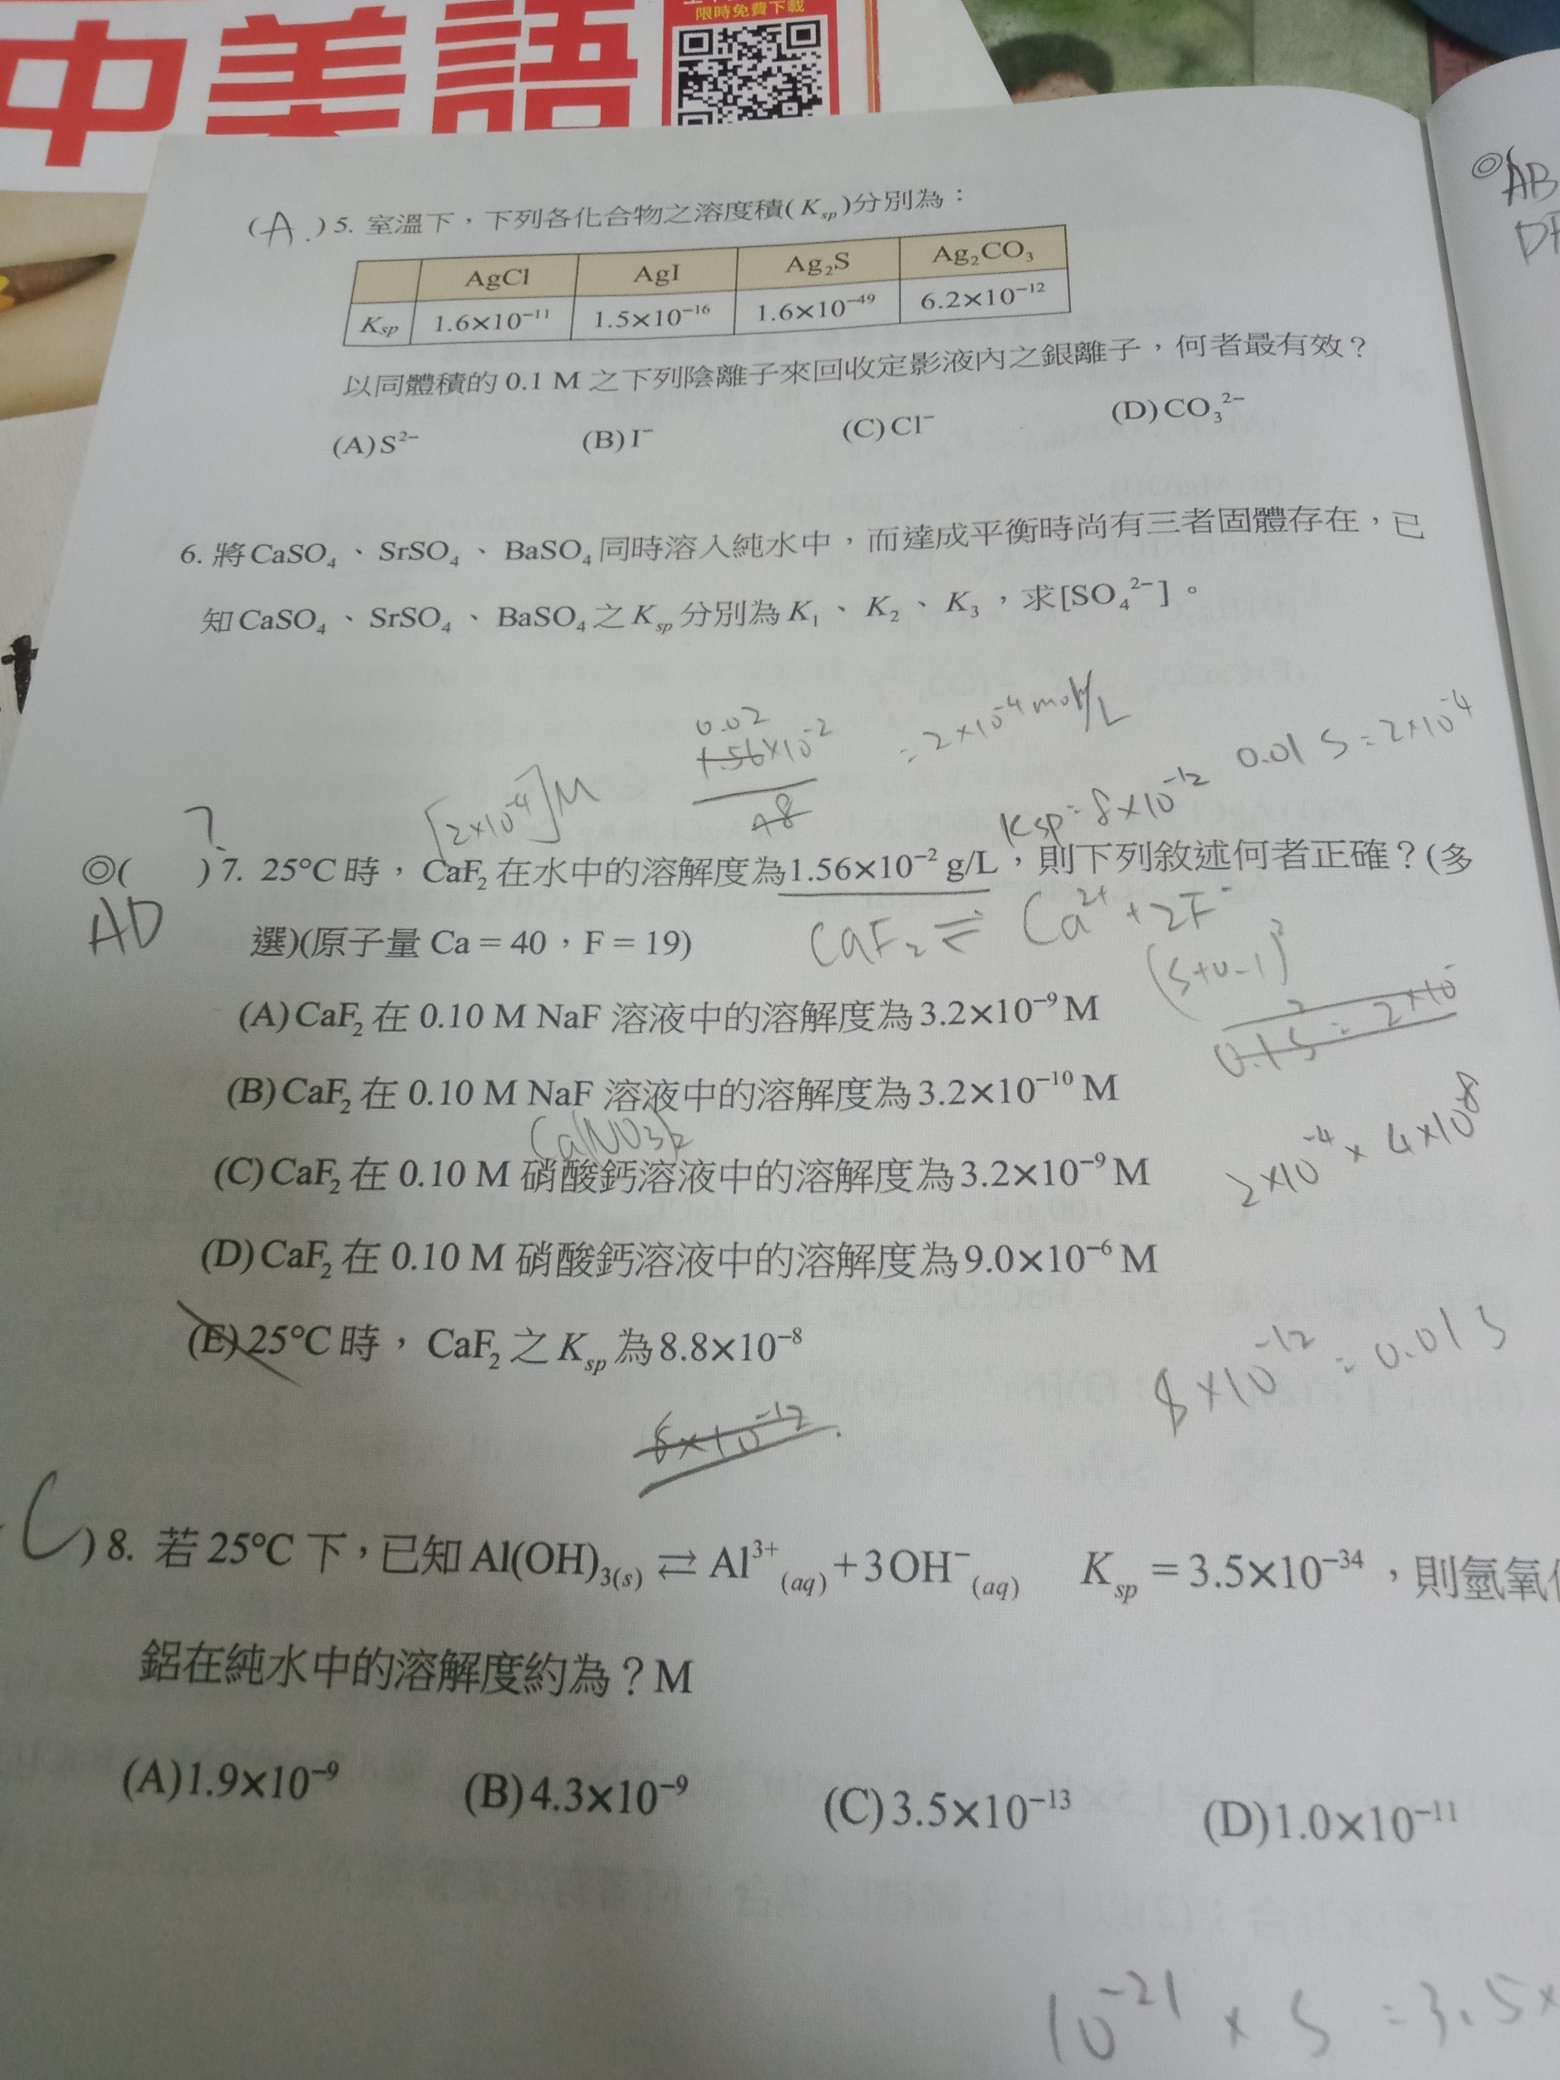 限時免費下載
中美語
(A.)5. 室溫下，下列各化合物之溶度積(Ksp)分別為：
AgCl AgI Ag₂S Ag₂CO₃
Ksp 1.6×10⁻¹¹ 1.5×10⁻¹⁶ 1.6×10⁻⁴⁹ 6.2×10⁻¹²
以同體積的 0.1 M 之下列陰離子來回收定影液內之銀離子，何者最有效？
(A)S²⁻ (B)I⁻ (C)Cl⁻ (D)CO₃²⁻
◎AB
6. 將CaSO₄、SrSO₄、BaSO₄同時溶入純水中，而達成平衡時尚有三者固體存在，已
知CaSO₄、SrSO₄、BaSO₄之Ksp分別為K₁、K₂、K₃，求[SO₄²⁻]。
0.02
1.56×10⁻² = 2×10⁻⁴ mol/L 0.01 S = 2×10⁻⁴
78
[2×10⁻⁴]M Ksp=8×10⁻¹²
?
◎( )7. 25°C時，CaF₂在水中的溶解度為1.56×10⁻² g/L，則下列敘述何者正確？(多
AD
CaF₂ ⇌ Ca²⁺ + 2F⁻
選)(原子量 Ca = 40，F = 19)
(A)CaF₂在 0.10 M NaF 溶液中的溶解度為3.2×10⁻⁹ M
0.1S = 2×10⁻
(B)CaF₂在 0.10 M NaF 溶液中的溶解度為3.2×10⁻¹⁰ M
Ca(NO₃)₂
(C)CaF₂在 0.10 M 硝酸鈣溶液中的溶解度為3.2×10⁻⁹ M
2×10⁻⁴ × 4×10⁻⁸
(D)CaF₂在 0.10 M 硝酸鈣溶液中的溶解度為9.0×10⁻⁶ M
(E)25°C時，CaF₂之Ksp為8.8×10⁻⁸
8×10⁻¹² = 0.01S
C)8. 若25°C下，已知Al(OH)₃(s) ⇄ Al³⁺(aq)+3OH⁻(aq) Ksp = 3.5×10⁻³⁴，則氫氧化
鋁在純水中的溶解度約為？M
(A)1.9×10⁻⁹ (B)4.3×10⁻⁹ (C)3.5×10⁻¹³ (D)1.0×10⁻¹¹
10⁻²¹ × S = 3.5×